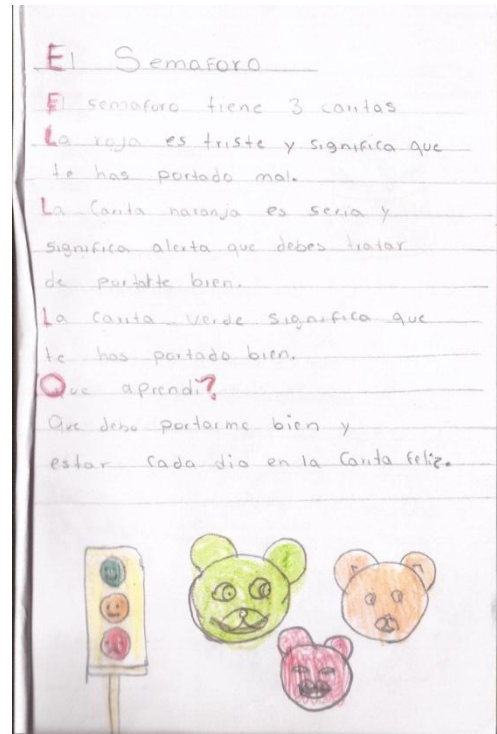 El Semaforo
El semaforo tiene 3 caritas
La roja es triste y significa que
te has portado mal.
La Carita naranja es seria y
significa alerta que debes tratar
de portarte bien.
La carita verde significa que
te has portado bien.
Que aprendi?
Que debo portarme bien y
estar cada dia en la Carita feliz.